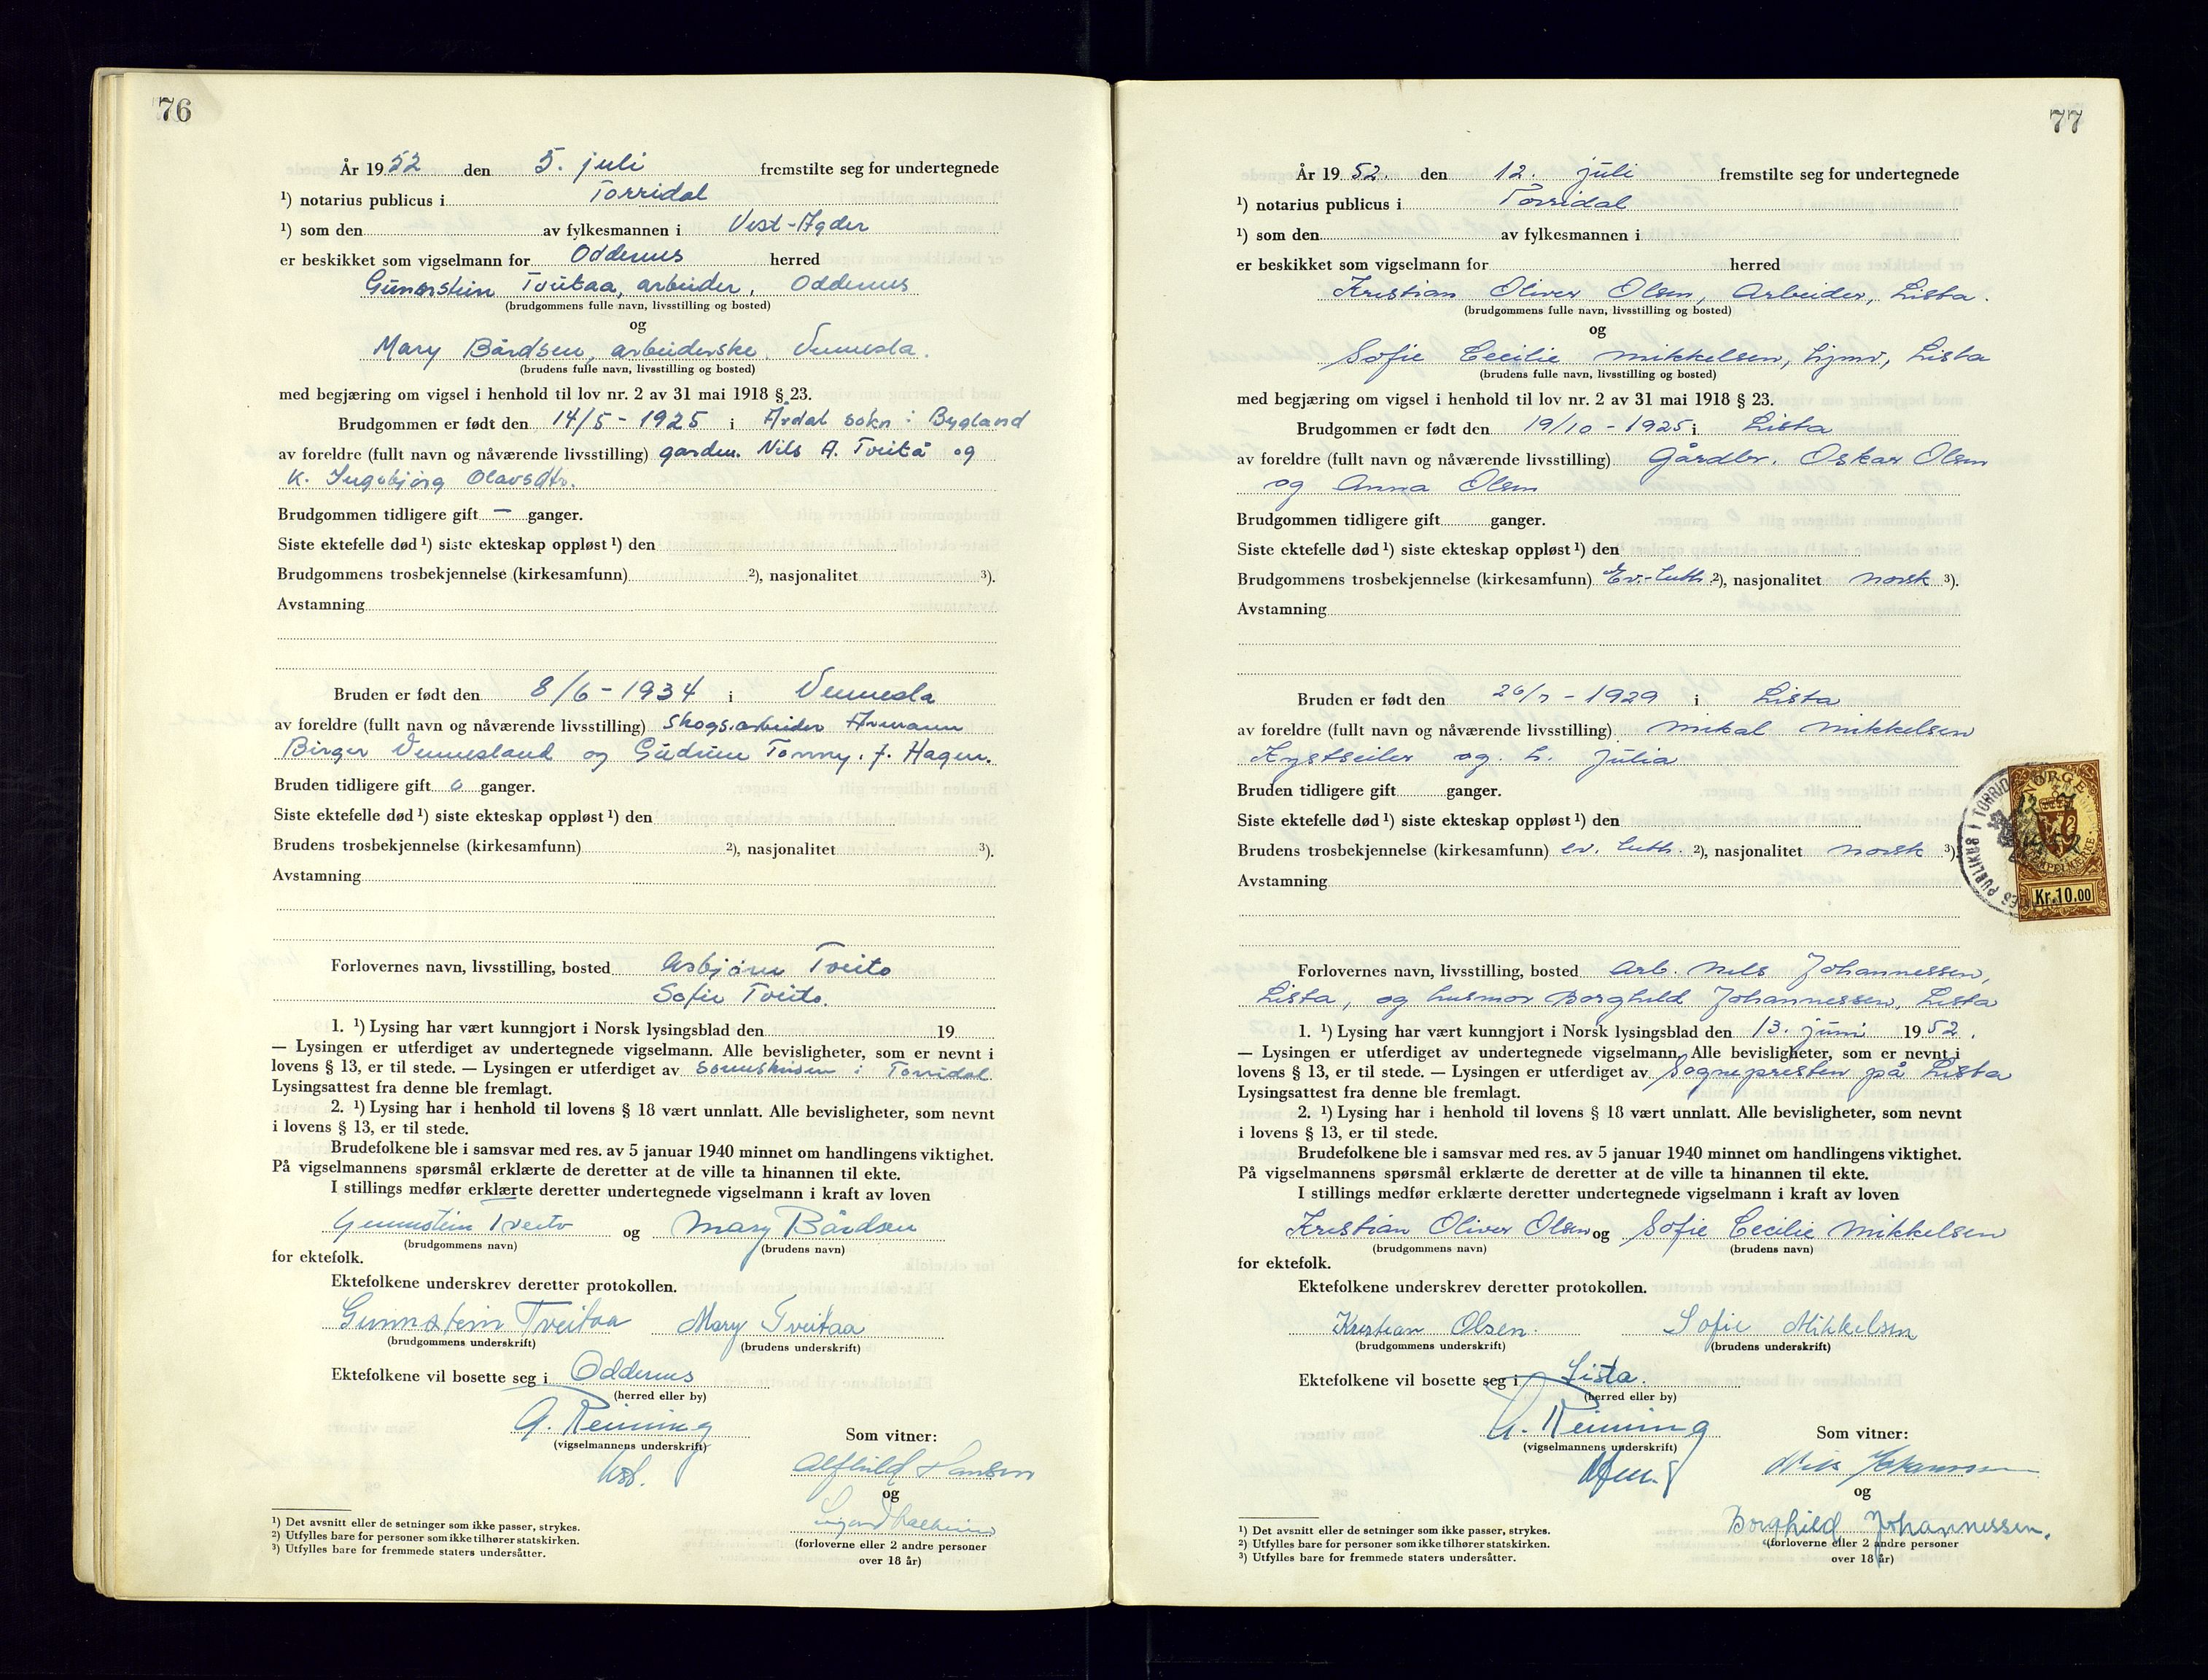 76
År 1952 den 5. juli fremstilte seg for undertegnede
¹) notarius publicus i Torridal
¹) som den av fylkesmannen i Vest-Agder
er beskikket som vigselmann for Oddernes herred
Gunnstein Tveitaa, arbeider, Oddernes
(brudgommens fulle navn, livsstilling og bosted)
og
Mary Bårdsen, arbeiderske, Vennesla.
(brudens fulle navn, livsstilling og bosted)
med begjæring om vigsel i henhold til lov nr. 2 av 31 mai 1918 § 23.
Brudgommen er født den 14/5 - 1925 i Årdal sokn i Bygland
av foreldre (fullt navn og nåværende livsstilling) gardbr. Nils A. Tveitå og
K. Ingebjørg Olavsdtr.
Brudgommen tidligere gift — ganger.
Siste ektefelle død ¹) siste ekteskap oppløst ¹) den
Brudgommens trosbekjennelse (kirkesamfunn) ²), nasjonalitet ³).
Avstamning
Bruden er født den 8/6 - 1934 i Vennesla
av foreldre (fullt navn og nåværende livsstilling) Skogsarbeider
Birger Vennesland og Gudrun Tonny, f. Hagen.
Bruden tidligere gift 0 ganger.
Siste ektefelle død ¹) siste ekteskap oppløst ¹) den
Brudens trosbekjennelse (kirkesamfunn) ²), nasjonalitet ³).
Avstamning
Forlovernes navn, livsstilling, bosted Asbjørn Tveito
Sofie Tveito.
1. ¹) Lysing har vært kunngjort i Norsk lysingsblad den 19
— Lysingen er utferdiget av undertegnede vigselmann. Alle bevisligheter, som er nevnt i
lovens § 13, er til stede. — Lysingen er utferdiget av i Torridal
Lysingsattest fra denne ble fremlagt.
2. ¹) Lysing har i henhold til lovens § 18 vært unnlatt. Alle bevisligheter, som nevnt
i lovens § 13, er til stede.
Brudefolkene ble i samsvar med res. av 5 januar 1940 minnet om handlingens viktighet.
På vigselmannens spørsmål erklærte de deretter at de ville ta hinannen til ekte.
I stillings medfør erklærte deretter undertegnede vigselmann i kraft av loven
Gunnstein Tveito og Mary Bårdsen
(brudgommens navn) (brudens navn)
for ektefolk.
Ektefolkene underskrev deretter protokollen.
Gunnstein Tveitaa Mary Tveitaa
(brudgommens underskrift) (brudens underskrift)
Ektefolkene vil bosette seg i Oddernes
(herred eller by)
(vigselmannens underskrift)
Som vitner:
Alfhild Hansen
og
(forloverne eller 2 andre personer
over 18 år)
¹) Det avsnitt eller de setninger som ikke passer, strykes.
²) Utfylles bare for personer som ikke tilhører statskirken.
³) Utfylles bare for fremmede staters undersåtter.
77
År 1952. den 12. juli fremstilte seg for undertegnede
¹) notarius publicus i Torridal
¹) som den av fylkesmannen i
er beskikket som vigselmann for herred
Kristian Oliver Olsen, Arbeider, Lista.
(brudgommens fulle navn, livsstilling og bosted)
og
Sofie Cecilie Mikkelsen, hjmv, Lista
(brudens fulle navn, livsstilling og bosted)
med begjæring om vigsel i henhold til lov nr. 2 av 31 mai 1918 § 23.
Brudgommen er født den 19/10 - 1925 i Lista
av foreldre (fullt navn og nåværende livsstilling) Gårdbr. Oskar Olsen
og Anna Olsen
Brudgommen tidligere gift ganger.
Siste ektefelle død ¹) siste ekteskap oppløst ¹) den
Brudgommens trosbekjennelse (kirkesamfunn) Ev.-luth. ²), nasjonalitet norsk ³).
Avstamning
Bruden er født den 26/7 - 1929 i Lista
av foreldre (fullt navn og nåværende livsstilling) Mikal Mikkelsen
Kystseiler og h. Julia
Bruden tidligere gift ganger.
Siste ektefelle død ¹) siste ekteskap oppløst ¹) den
Brudens trosbekjennelse (kirkesamfunn) ev. luth. ²), nasjonalitet norsk ³)
Avstamning
NORGE
Kr.10.00
PUBLIKUS I TORRID
Forlovernes navn, livsstilling, bosted Arb. Nils Johannessen,
Lista, og husmor Borghild Johannessen, Lista
1. ¹) Lysing har vært kunngjort i Norsk lysingsblad den 13. juni 1952.
— Lysingen er utferdiget av undertegnede vigselmann. Alle bevisligheter, som er nevnt i
lovens § 13, er til stede. — Lysingen er utferdiget av Sognepresten på Lista
Lysingsattest fra denne ble fremlagt.
2. ¹) Lysing har i henhold til lovens § 18 vært unnlatt. Alle bevisligheter, som nevnt
i lovens § 13, er til stede.
Brudefolkene ble i samsvar med res. av 5 januar 1940 minnet om handlingens viktighet.
På vigselmannens spørsmål erklærte de deretter at de ville ta hinannen til ekte.
I stillings medfør erklærte deretter undertegnede vigselmann i kraft av loven
Kristian Oliver Olsen og Sofie Cecilie Mikkelsen
(brudgommens navn) (brudens navn)
for ektefolk.
Ektefolkene underskrev deretter protokollen.
Kristian Olsen. Sofie Mikkelsen
(brudgommens underskrift) (brudens underskrift)
Ektefolkene vil bosette seg i Lista.
(herred eller by)
(vigselmannens underskrift)
Som vitner:
Nils Johannessen
og
Borghild Johannessen.
(forloverne eller 2 andre personer
over 18 år)
¹) Det avsnitt eller de setninger som ikke passer, strykes.
²) Utfylles bare for personer som ikke tilhører statskirken.
³) Utfylles bare for fremmede staters undersåtter.